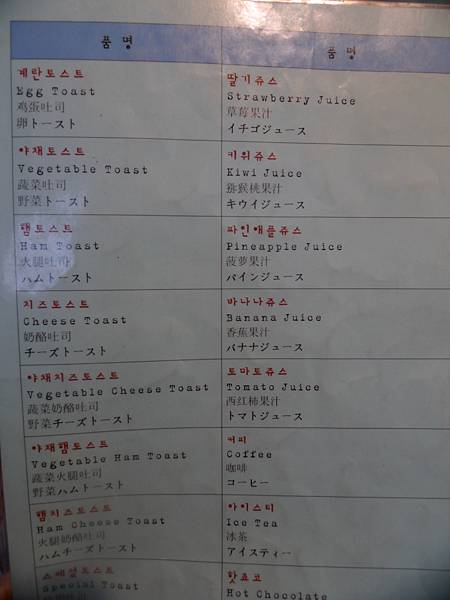 품 명
계란토스트
Egg Toast
鸡蛋吐司
卵トースト
야채토스트
Vegetable Toast
蔬菜吐司
野菜トースト
햄토스트
Ham Toast
火腿吐司
ハムトースト
치즈토스트
Cheese Toast
奶酪吐司
チーズトースト
야채치즈토스트
Vegetable Cheese Toast
蔬菜奶酪吐司
野菜チーズトースト
야채햄토스트
Vegetable Ham Toast
蔬菜火腿吐司
野菜ハムトースト
햄치즈토스트
Ham Cheese Toast
火腿奶酪吐司
ハムチーズトースト
스페셜토스트
Special Toast
품 명
딸기쥬스
Strawberry Juice
草莓果汁
イチゴジュース
키위쥬스
Kiwi Juice
猕猴桃果汁
キウイジュース
파인애플쥬스
Pineapple Juice
菠萝果汁
パインジュース
바나나쥬스
Banana Juice
香蕉果汁
バナナジュース
토마토쥬스
Tomato Juice
西红柿果汁
トマトジュース
커피
Coffee
咖啡
コーヒー
아이스티
Ice Tea
冰茶
アイスティー
핫쵸코
Hot Chocolate